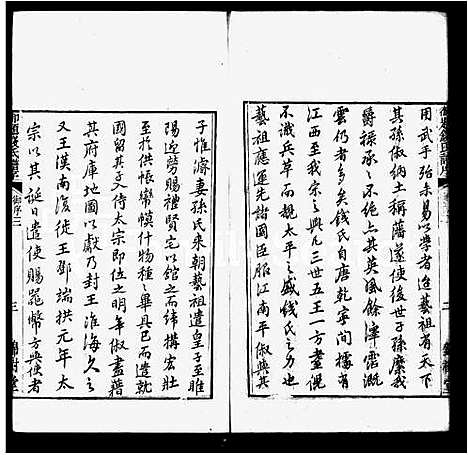 用武乎殆未易以學者迨藝祖有天下
其孫俶納土稱藩遂使後世子孫縻我
爵祿承承不絶其英風餘澤霑溉
雲仍者多矣錢氏自唐乾寧間據有
江西至我宗之興凡三世五王一方耋倪
不識兵革而覩太平之盛錢氏之功
藝祖應運先諸國臣服江南平俶與其
子惟濬妻孫氏來朝藝祖遣皇子至睢
陽迎勞賜禮賢宅以館之而締構宏壯
至於供帳帟幙什物種種畢具已而遣就
國留其子入侍太宗即位之明年俶盡籍
其府庫地圖以獻乃封王淮海久之
又王漢南復徙王鄧端拱元年太
宗以其誕日遣使賜器幣方與使者
御序三
三
錦樹堂
二